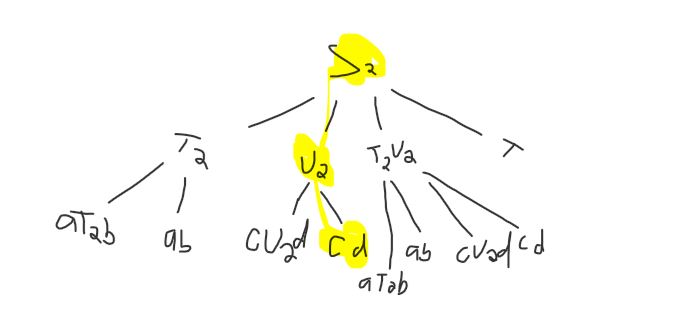 S₂
T₂ U₂ T₂U₂ T
aT₂b ab cU₂d cd aT₂b ab cU₂d cd